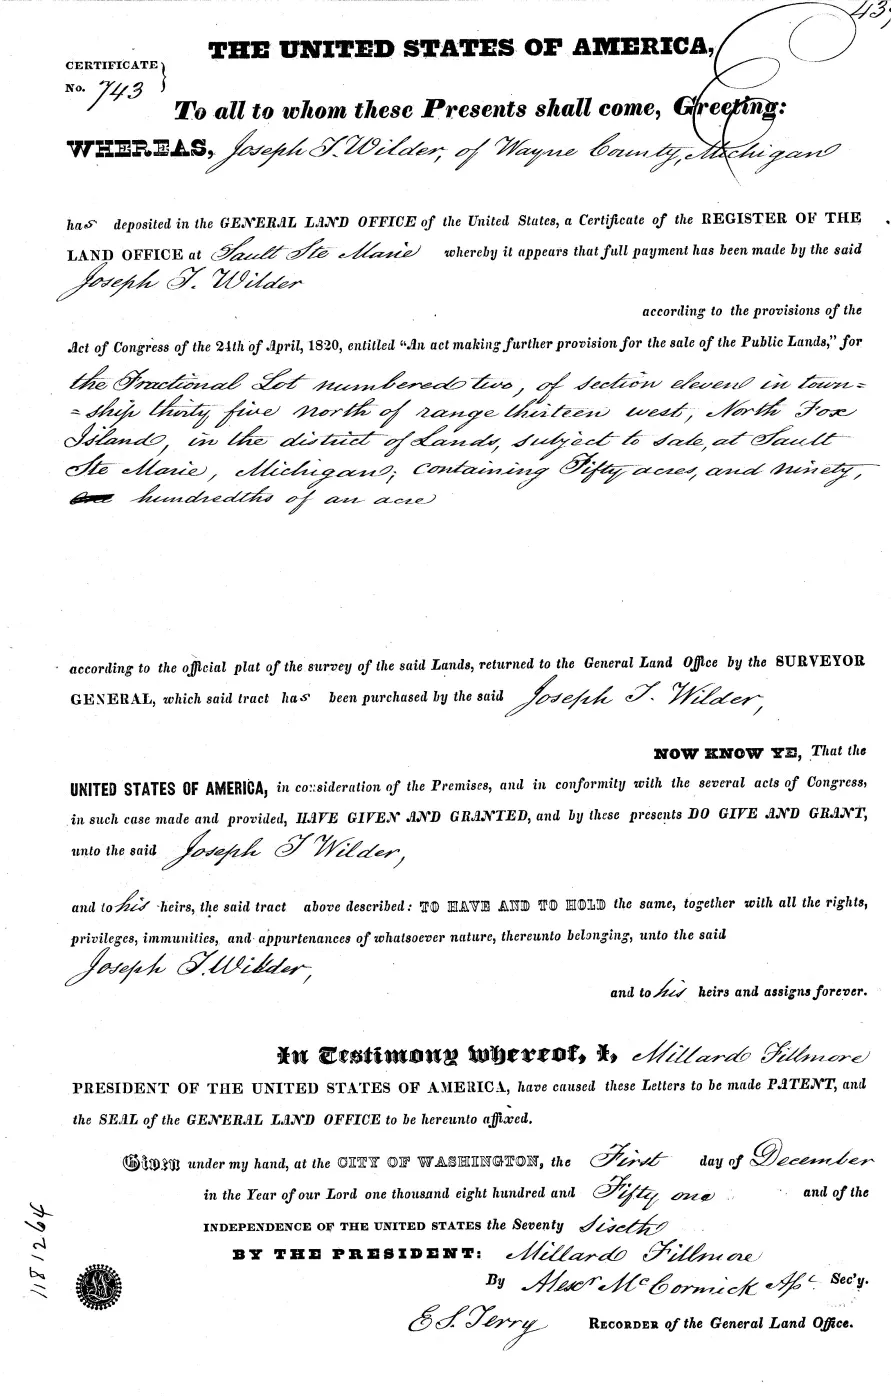 43,
THE UNITED STATES OF AMERICA,
CERTIFICATE
No. 743
To all to whom these Presents shall come, Greeting:
WHEREAS, Joseph T. Wilder, of Wayne County, Michigan
has deposited in the GENERAL LAND OFFICE of the United States, a Certificate of the REGISTER OF THE
LAND OFFICE at Sault Ste Marie whereby it appears that full payment has been made by the said
Joseph T. Wilder
according to the provisions of the
Act of Congress of the 24th of April, 1820, entitled "An act making further provision for the sale of the Public Lands," for
the Fractional Lot numbered two, of section eleven in town=
=ship thirty five north of range thirteen west, North Fox
Island, in the district of Lands, subject to sale, at Sault
Ste Marie, Michigan; containing Fifty acres, and ninety,
hundredths of an acre
according to the official plat of the survey of the said Lands, returned to the General Land Office by the SURVEYOR
GENERAL, which said tract has been purchased by the said Joseph T. Wilder,
NOW KNOW YE, That the
UNITED STATES OF AMERICA, in consideration of the Premises, and in conformity with the several acts of Congress,
in such case made and provided, HAVE GIVEN AND GRANTED, and by these presents DO GIVE AND GRANT,
unto the said Joseph T Wilder,
and to his heirs, the said tract above described: TO HAVE AND TO HOLD the same, together with all the rights,
privileges, immunities, and appurtenances of whatsoever nature, thereunto belonging, unto the said
Joseph T. Wilder,
and to his heirs and assigns forever.
In Testimony whereof, I, Millard Fillmore
PRESIDENT OF THE UNITED STATES OF AMERICA, have caused these Letters to be made PATENT, and
the SEAL of the GENERAL LAND OFFICE to be hereunto affixed.
Given under my hand, at the CITY OF WASHINGTON, the First day of December
in the Year of our Lord one thousand eight hundred and Fifty one and of the
INDEPENDENCE OF THE UNITED STATES the Seventy sixth
BY THE PRESIDENT: Millard Fillmore
By Alexr McCormick Ast Sec'y.
E S. Terry RECORDER of the General Land Office.
1181264